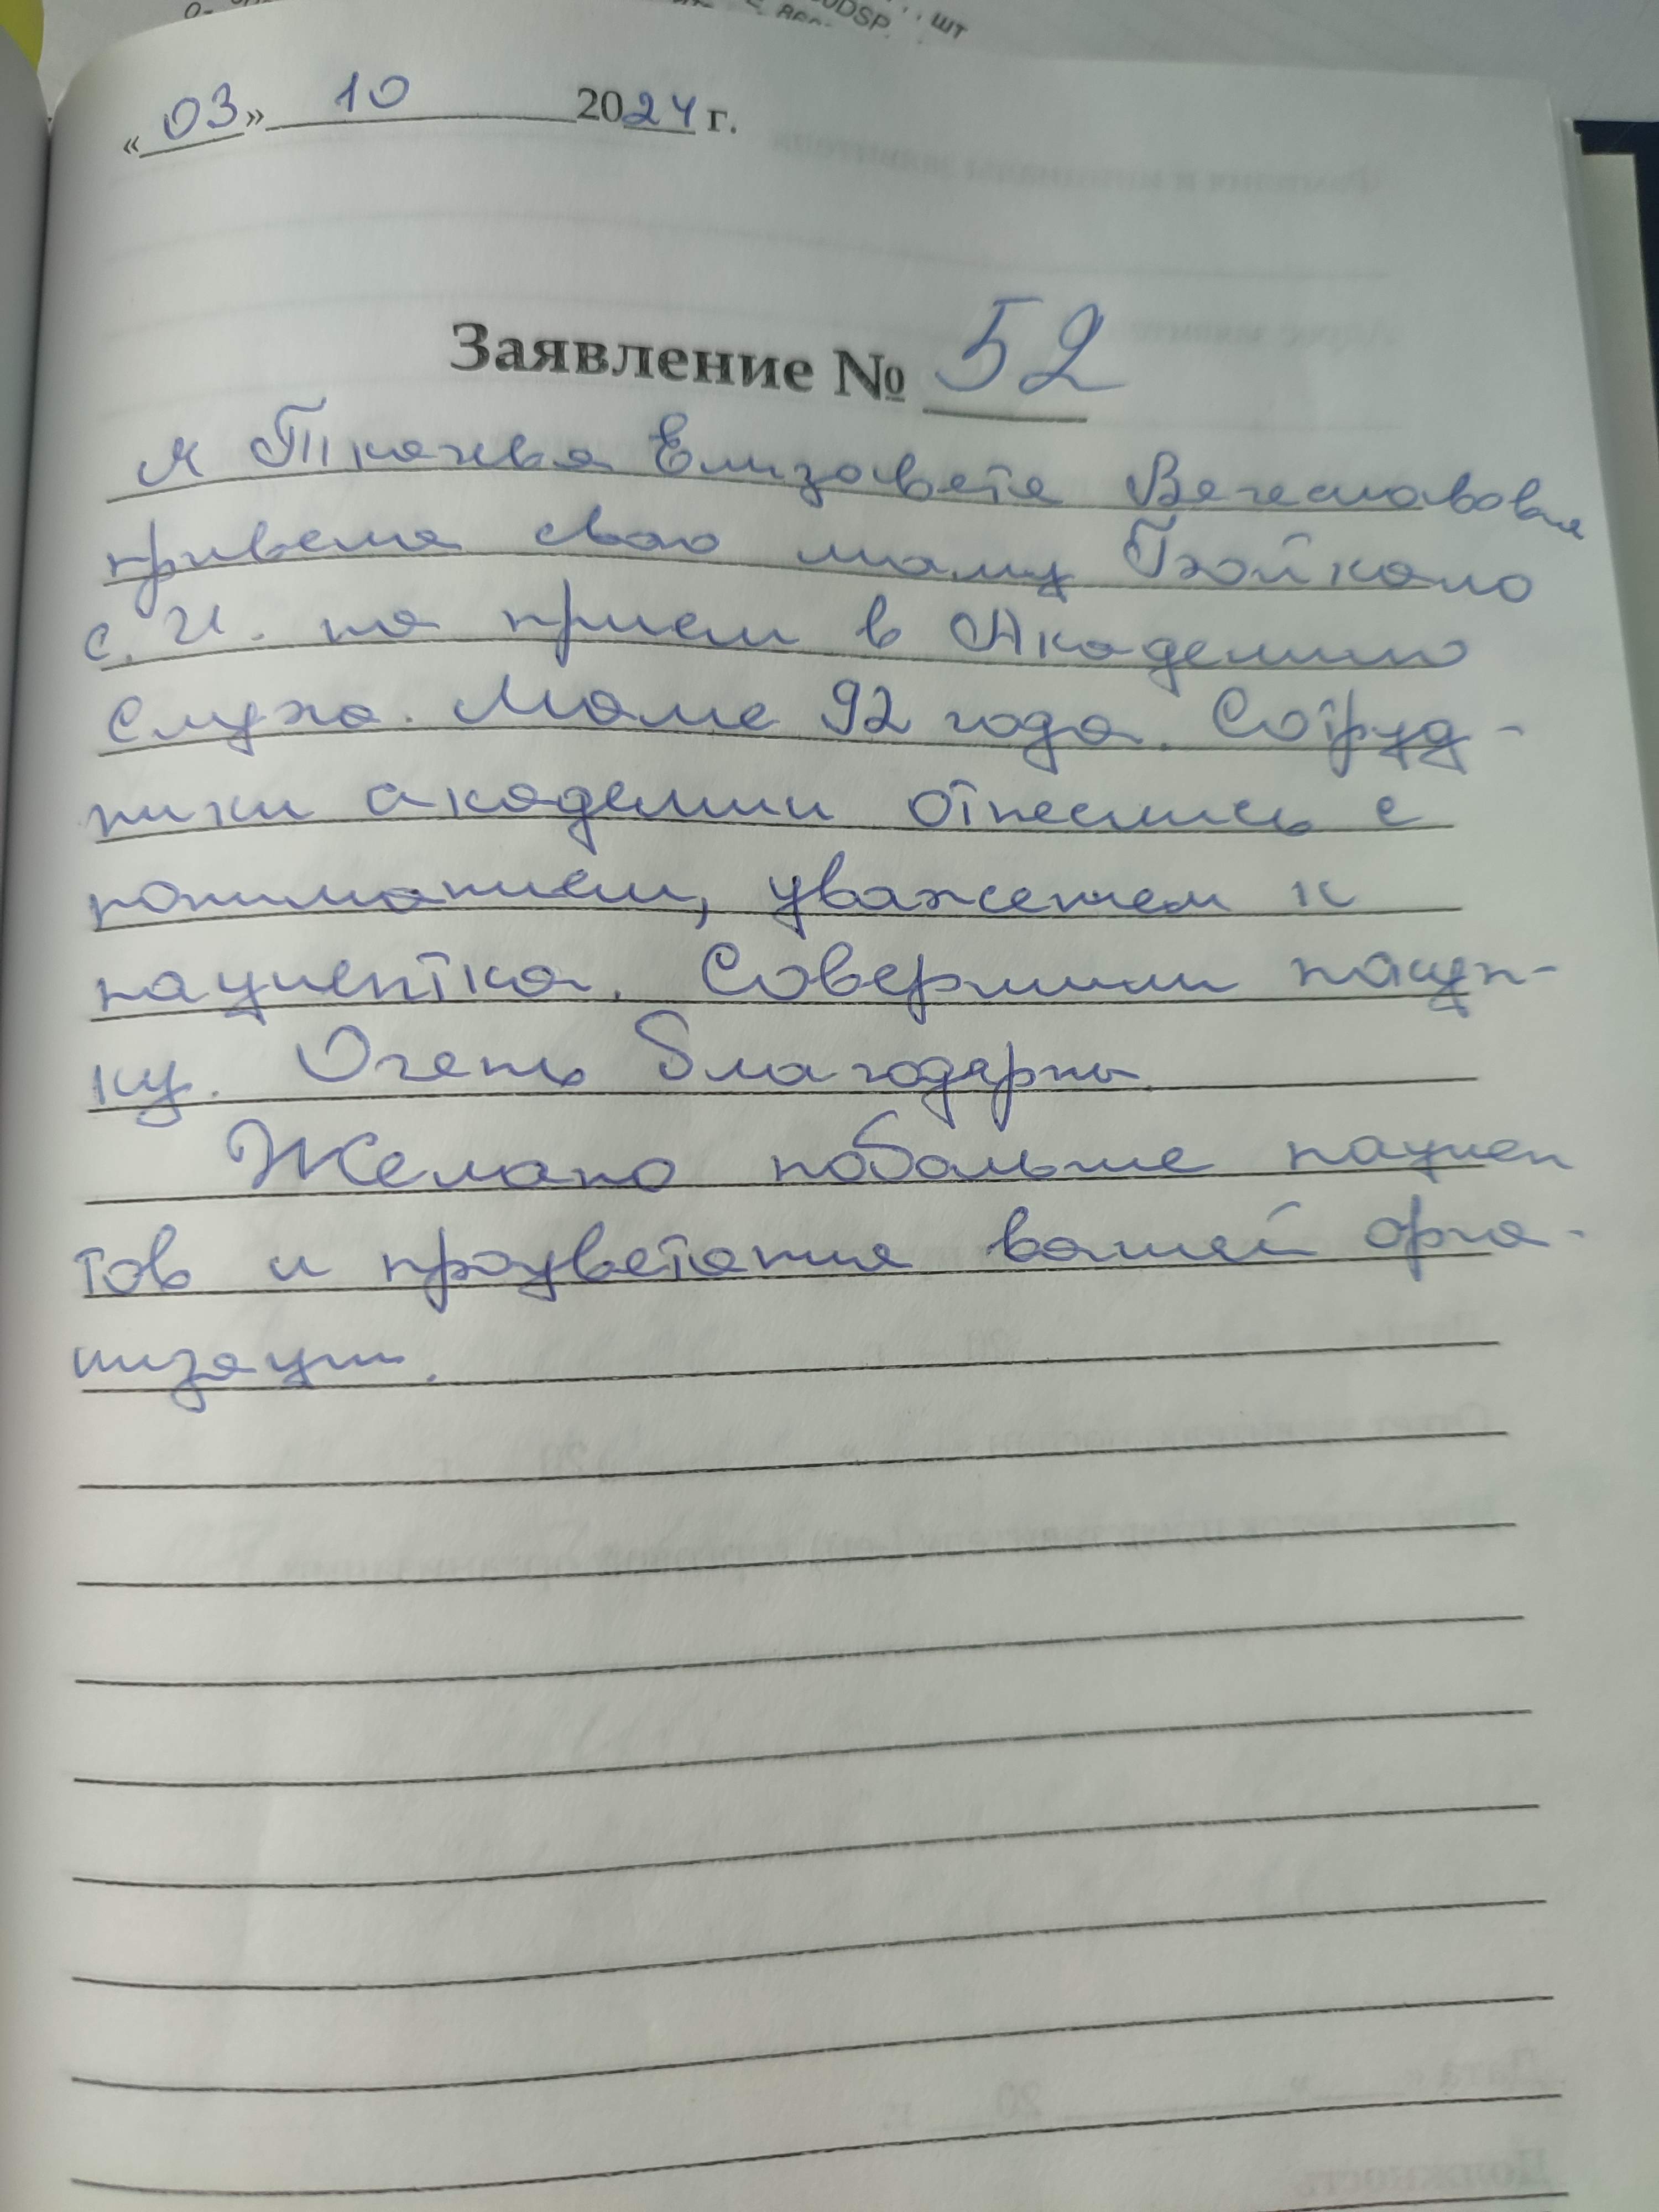 «03» 10 2024 г.
Заявление № 52
я Ткачева Елизавета Вячеславовна
привела свою маму
С. И. на прием в Академию
Слуха. Маме 92 года. Сотруд-
ники академии отнеслись с
пониманием, уважением к
пациентка. Совершили покуп-
ку. Очень благодарны.
Желаю побольше пациен
тов и процветания вашей орга-
низации.